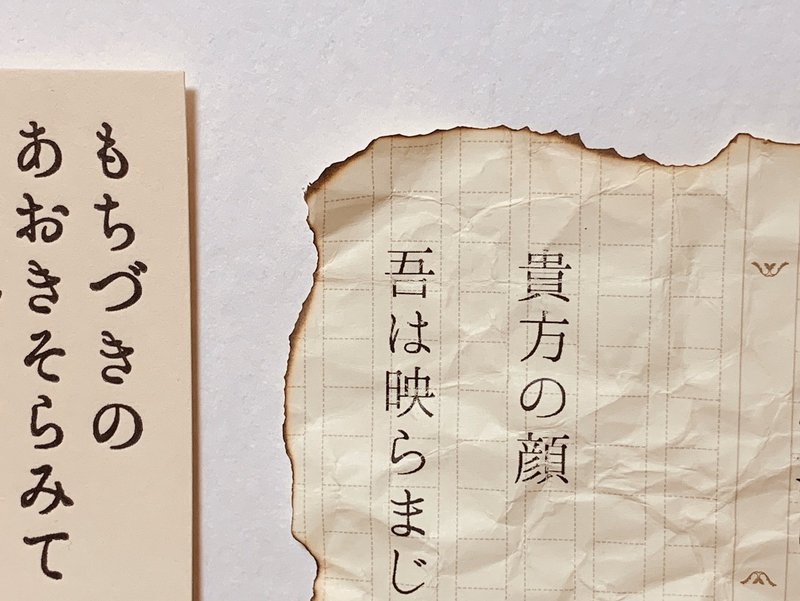 貴方の顔
吾は映らまじ
もちづきの
あおきそらみて